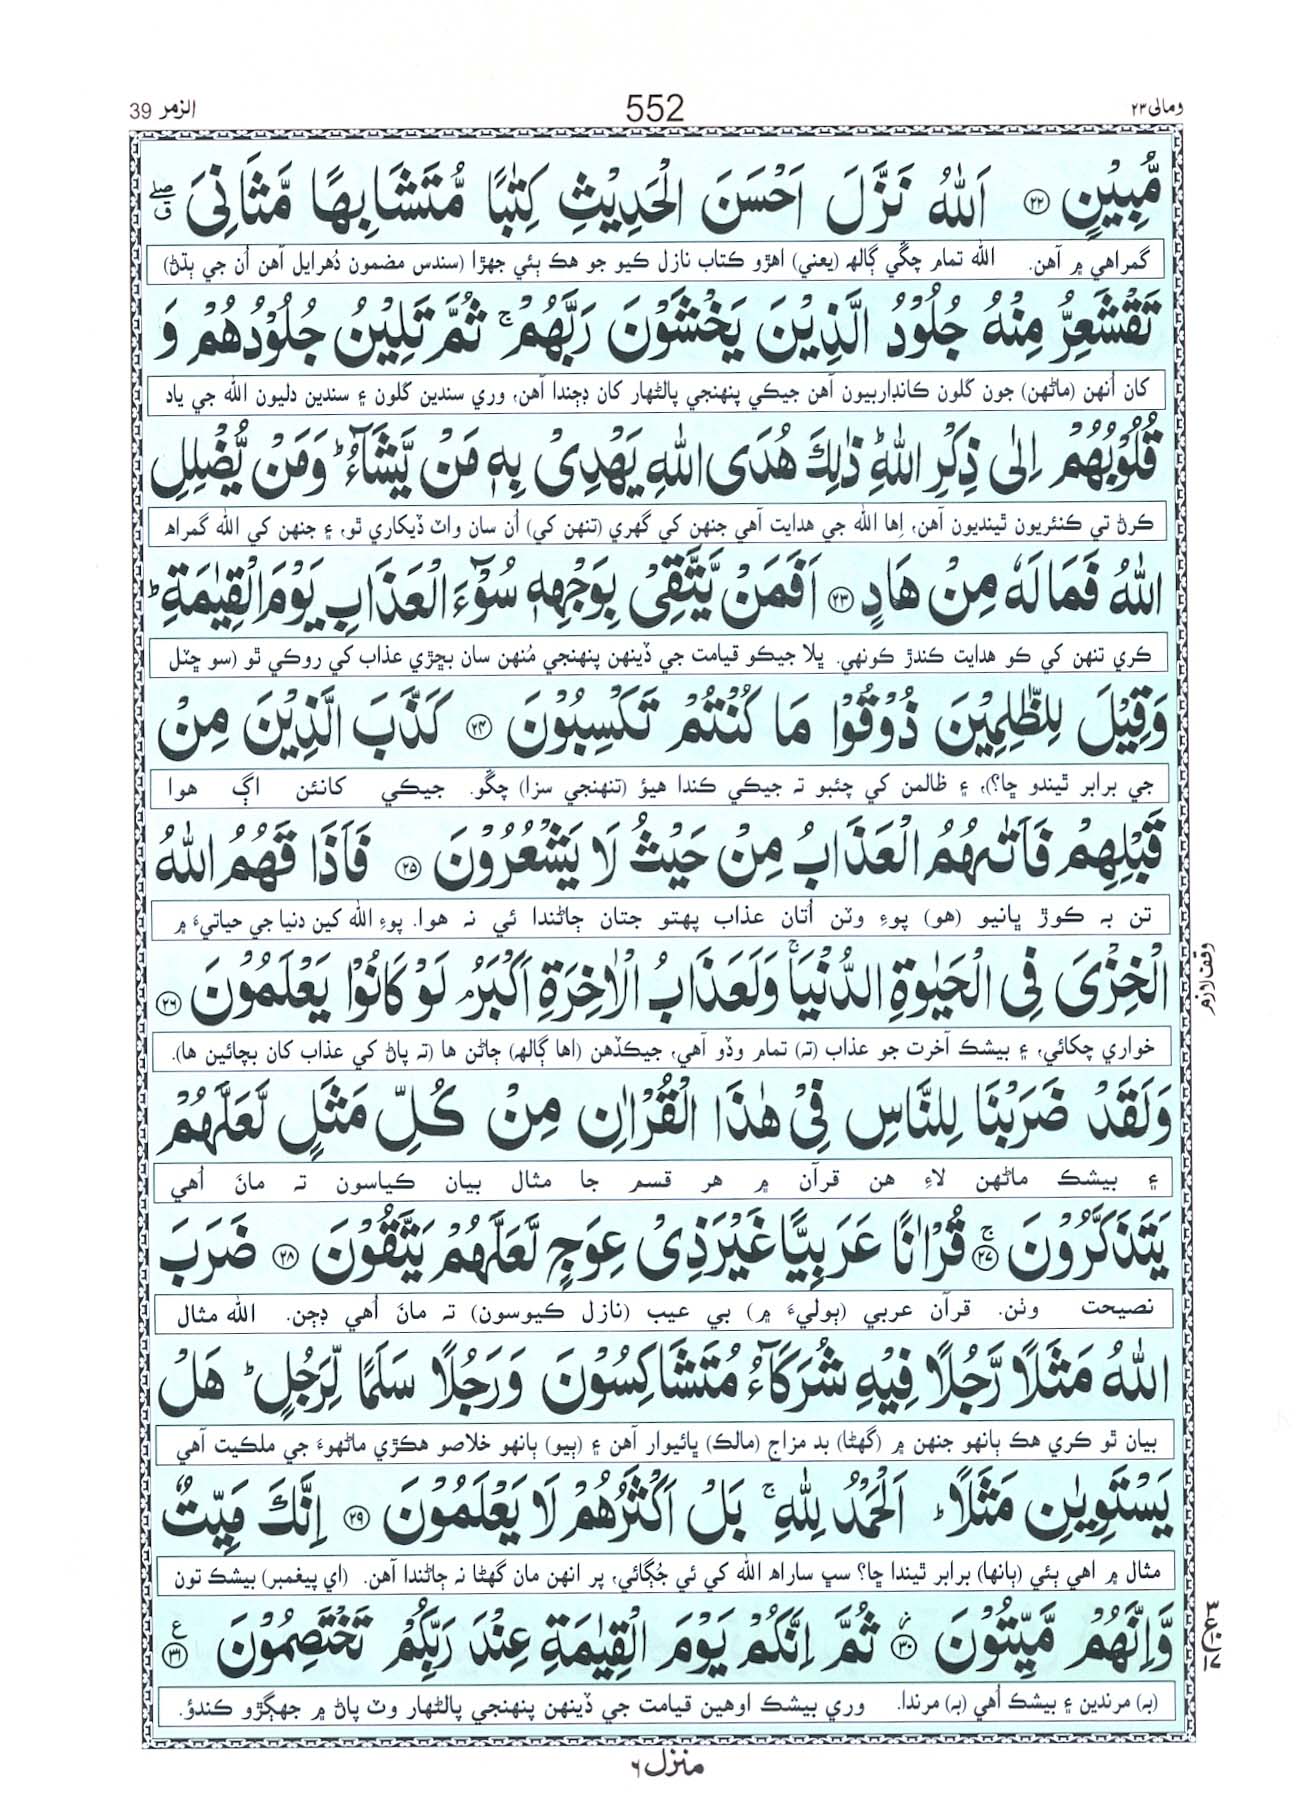 ومالی ۲۳
552
الزمر 39
مُّبِيْنٍ ۲۲ اَللّٰهُ نَزَّلَ اَحْسَنَ الْحَدِيْثِ كِتٰبًا مُّتَشَابِهًا مَّثَانِیَ ۖق صلے
گمراهي ۾ آهن. الله تمام چڱي ڳالھ (يعني) اهڙو ڪتاب نازل ڪيو جو هڪ ٻئي جهڙا (سندس مضمون دُهرايل آهن اُن جي ٻڌڻ)
تَقْشَعِرُّ مِنْهُ جُلُوْدُ الَّذِيْنَ يَخْشَوْنَ رَبَّهُمْ ۚ ثُمَّ تَلِيْنُ جُلُوْدُهُمْ وَ
کان اُنهن (ماڻهن) جون کلون ڪانڊاربيون آهن جيڪي پنهنجي پالڻهار کان ڊڄندا آهن، وري سندين کلون ۽ سندين دليون الله جي ياد
قُلُوْبُهُمْ اِلٰى ذِكْرِ اللّٰهِ ؕ ذٰلِكَ هُدَى اللّٰهِ يَهْدِیْ بِهٖ مَنْ يَّشَآءُ ؕ وَمَنْ يُّضْلِلِ
ڪرڻ تي ڪنئريون ٿينديون آهن، اِها الله جي هدايت آهي جنهن کي گهري (تنهن کي) اُن سان واٽ ڏيکاري ٿو، ۽ جنهن کي الله گمراھ
اللّٰهُ فَمَا لَهٗ مِنْ هَادٍ ۲۳ اَفَمَنْ يَّتَّقِیْ بِوَجْهِهٖ سُوْٓءَ الْعَذَابِ يَوْمَ الْقِيٰمَةِ ؕ
ڪري تنهن کي ڪو هدايت ڪندڙ ڪونهي. ڀلا جيڪو قيامت جي ڏينهن پنهنجي مُنهن سان بڇڙي عذاب کي روڪي ٿو (سو ڇٽل
وَقِيْلَ لِلظّٰلِمِيْنَ ذُوْقُوْا مَا كُنْتُمْ تَكْسِبُوْنَ ۲۴ كَذَّبَ الَّذِيْنَ مِنْ
جي برابر ٿيندو ڇا؟)، ۽ ظالمن کي چئبو تہ جيڪي ڪندا هيؤ (تنهنجي سزا) چکو. جيڪي کانئن اڳ هوا
قَبْلِهِمْ فَاَتٰىهُمُ الْعَذَابُ مِنْ حَيْثُ لَا يَشْعُرُوْنَ ۲۵ فَاَذَا قَهُمُ اللّٰهُ
تن بہ ڪوڙ ڀانيو (هو) پوءِ وٽن اُتان عذاب پهتو جتان ڄاڻندا ئي نہ هوا. پوءِ الله کين دنيا جي حياتيءَ ۾
الْخِزْیَ فِی الْحَيٰوةِ الدُّنْيَا ۚ وَلَعَذَابُ الْاٰخِرَةِ اَكْبَرُ ۘ لَوْ كَانُوْا يَعْلَمُوْنَ ۲۶
وقف لازم
خواري چکائي، ۽ بيشڪ آخرت جو عذاب (تہ) تمام وڏو آهي، جيڪڏهن (اها ڳالھ) ڄاڻن ها (تہ پاڻ کي عذاب کان بچائين ها).
وَلَقَدْ ضَرَبْنَا لِلنَّاسِ فِیْ هٰذَا الْقُرْاٰنِ مِنْ كُلِّ مَثَلٍ لَّعَلَّهُمْ
۽ بيشڪ ماڻهن لاءِ هن قرآن ۾ هر قسم جا مثال بيان ڪياسون تہ مانَ اُهي
يَتَذَكَّرُوْنَ ۲۷ ۚ قُرْاٰنًا عَرَبِيًّا غَيْرَ ذِیْ عِوَجٍ لَّعَلَّهُمْ يَتَّقُوْنَ ۲۸ ضَرَبَ
نصيحت وٺن. قرآن عربي (ٻوليءَ ۾) بي عيب (نازل ڪيوسون) تہ مانَ اُهي ڊڄن. الله مثال
اللّٰهُ مَثَلًا رَّجُلًا فِيْهِ شُرَكَآءُ مُتَشَاكِسُوْنَ وَرَجُلًا سَلَمًا لِّرَجُلٍ ؕ هَلْ
بيان ٿو ڪري هڪ ٻانهو جنهن ۾ (گهڻا) بد مزاج (مالڪ) ڀائيوار آهن ۽ (ٻيو) ٻانهو خلاصو هڪڙي ماڻهوءَ جي ملڪيت آهي
يَسْتَوِيٰنِ مَثَلًا ؕ اَلْحَمْدُ لِلّٰهِ ۚ بَلْ اَكْثَرُهُمْ لَا يَعْلَمُوْنَ ۲۹ اِنَّكَ مَيِّتٌ
مثال ۾ اهي ٻئي (ٻانها) برابر ٿيندا ڇا؟ سڀ ساراھ الله کي ئي جُڳائي، پر انهن مان گهڻا نہ ڄاڻندا آهن. (اي پيغمبر) بيشڪ تون
وَّاِنَّهُمْ مَّيِّتُوْنَ ۳۰ ز ثُمَّ اِنَّكُمْ يَوْمَ الْقِيٰمَةِ عِنْدَ رَبِّكُمْ تَخْتَصِمُوْنَ ۳۱ ع
(بہ) مرندين ۽ بيشڪ اُهي (بہ) مرندا. وري بيشڪ اوهين قيامت جي ڏينهن پنهنجي پالڻهار وٽ پاڻ ۾ جهڳڙو ڪندؤ.
منزل ۶